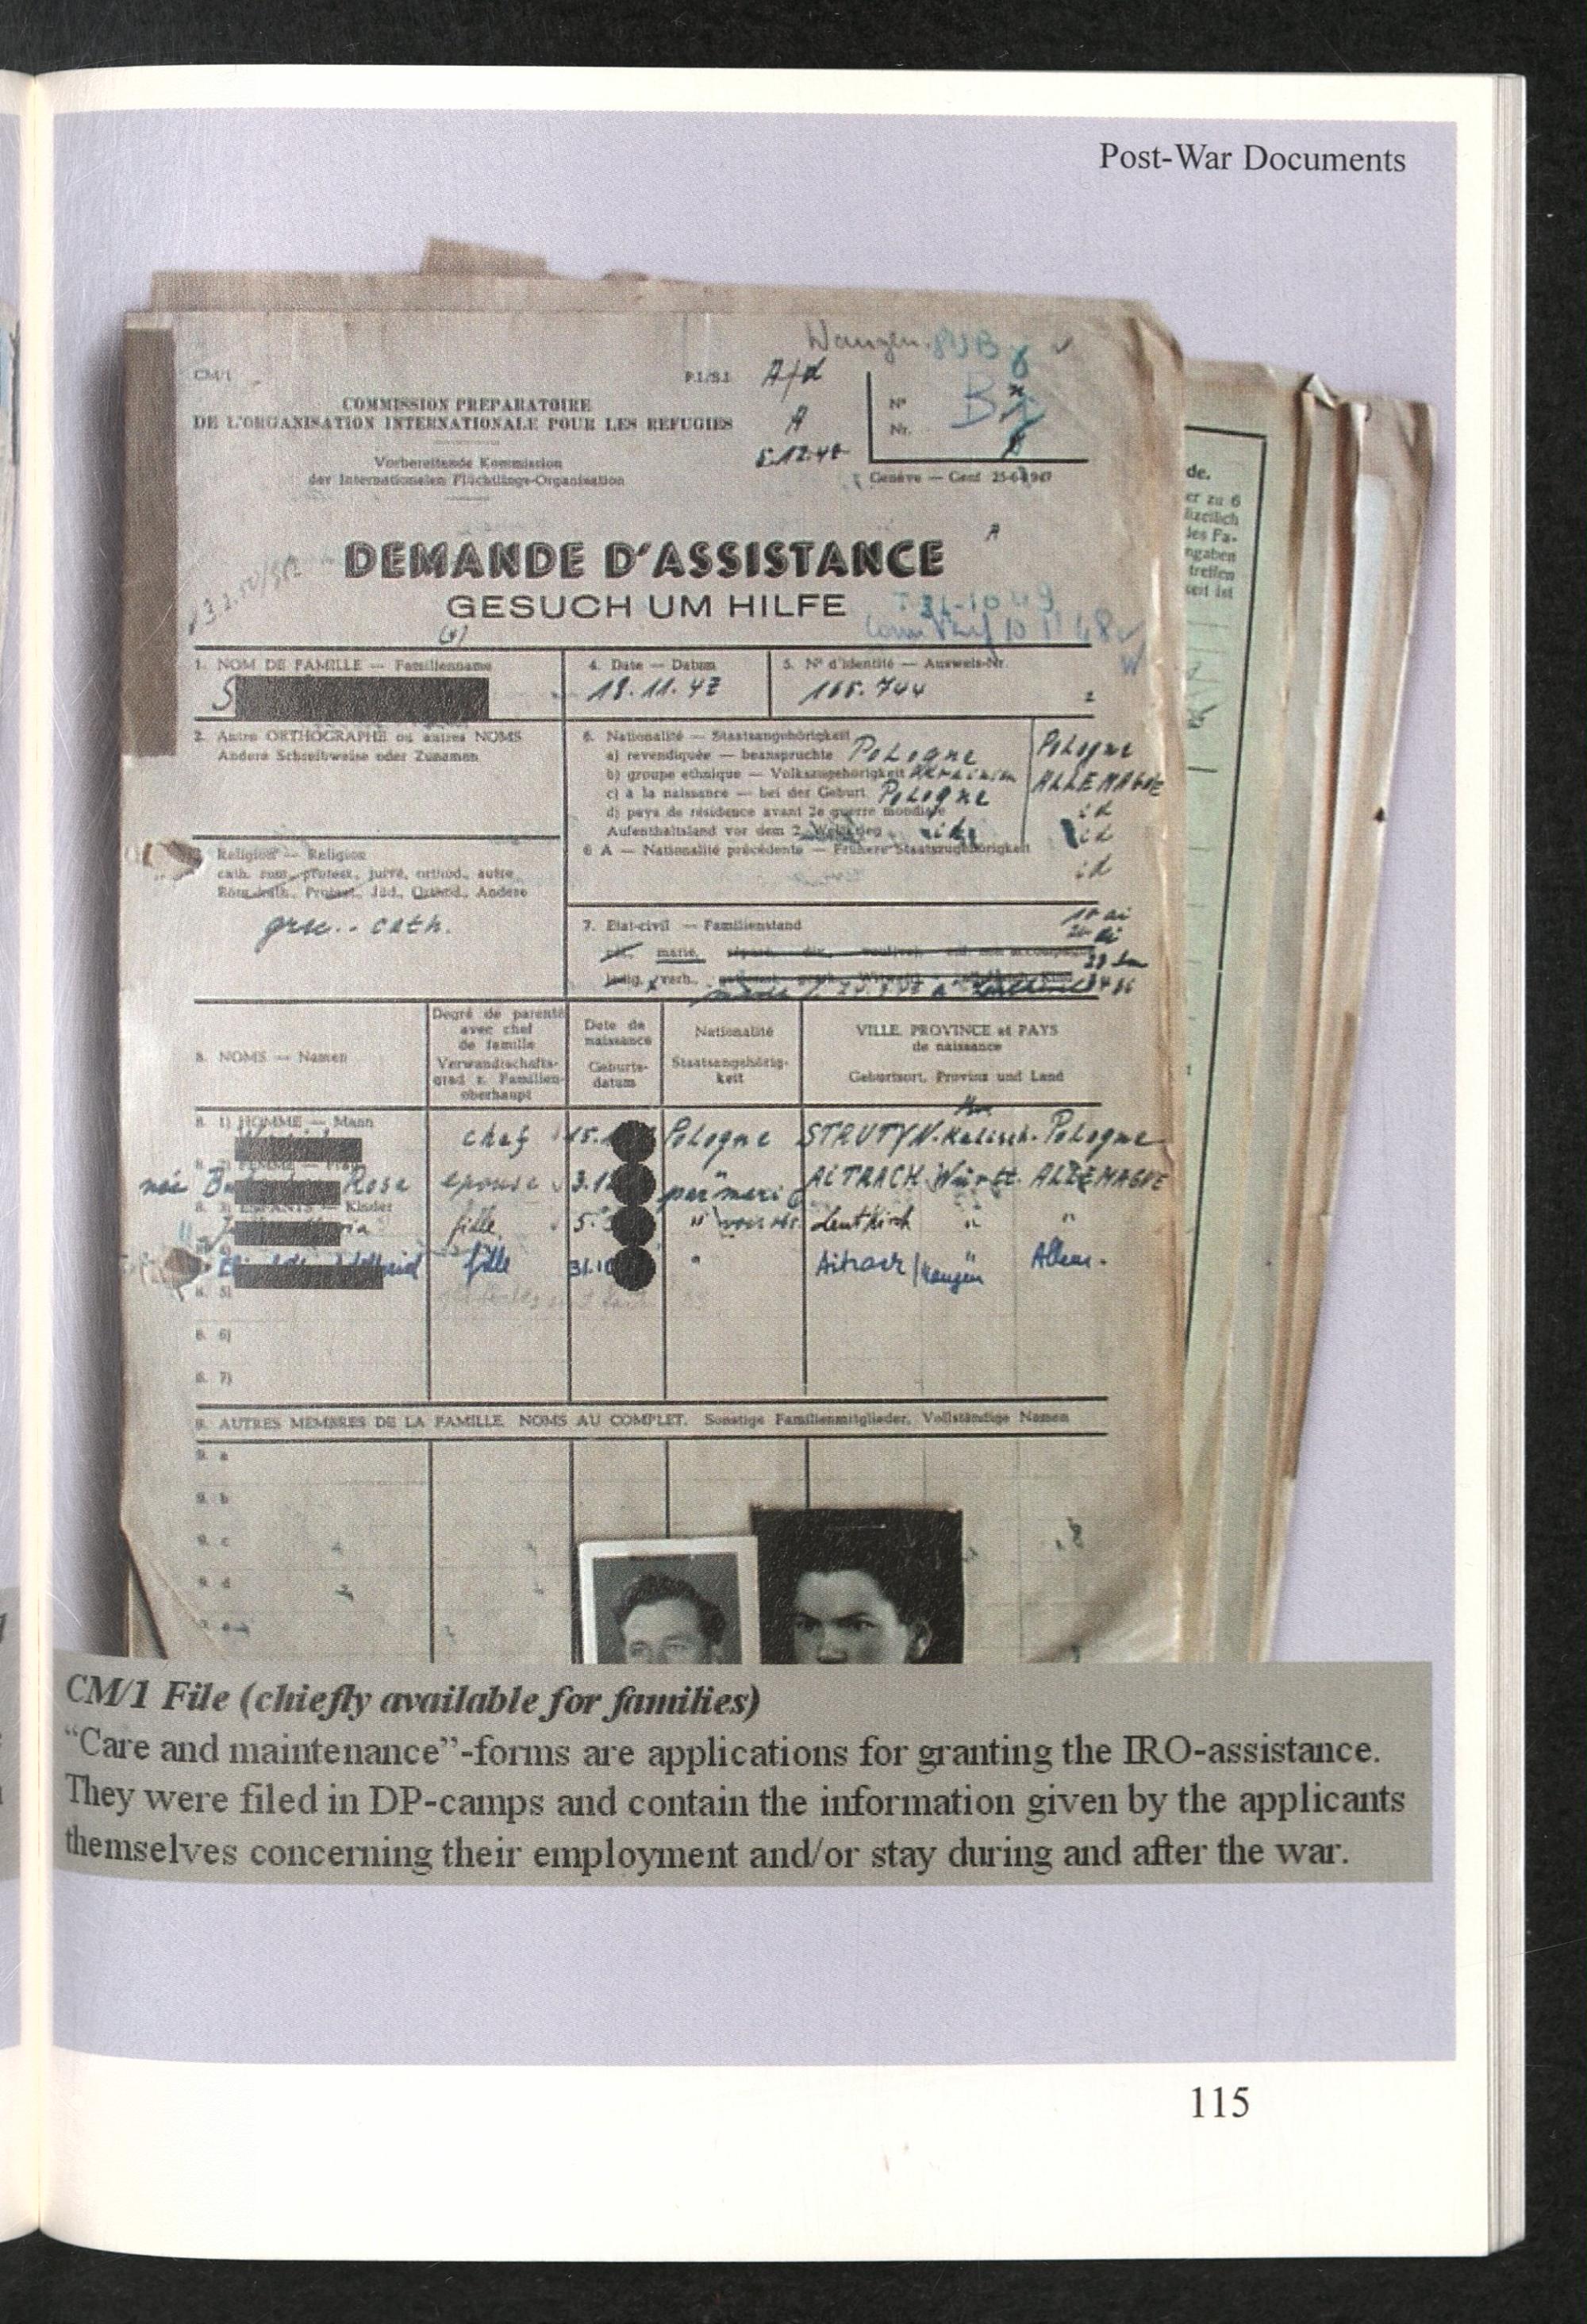 Post-War Documents
Wangen
CM/1
P.I./S.I.
A/d
COMMISSION PREPARATOIRE
DE L'ORGANISATION INTERNATIONALE POUR LES REFUGIES
A
Nº
Nr.
Vorbereitende Kommission
der Internationalen Flüchtlings-Organisation
Genève — Genf
DEMANDE D'ASSISTANCE
A
GESUCH UM HILFE
1. NOM DE FAMILLE — Familienname
S
4. Date — Datum
18.11.47
5. Nº d'identité — Ausweis-Nr.
165.744
2. Autre ORTHOGRAPHE ou autres NOMS
Andere Schreibweise oder Zunamen
6. Nationalité — Staatsangehörigkeit
a) revendiquée — beanspruchte Pologne
Pologne
b) groupe ethnique — Volkszugehörigkeit
ALLEMAGNE
c) à la naissance — bei der Geburt Pologne
id
d) pays de résidence avant 2e guerre mondiale
Aufenthaltsland vor dem 2. Weltkrieg id
id
6 A — Nationalité précédente — Frühere Staatszugehörigkeit
id
Religion — Religion
cath. rom., protest., juive, orthod., autre
Röm.kath., Protest., Jüd., Orthod., Andere
grec. - cath.
7. Etat-civil — Familienstand
marié,
ledig, verh.,
8. NOMS — Namen
Degré de parenté
avec chef
de famille
Verwandtschafts-
grad z. Familien-
oberhaupt
Date de
naissance
Geburts-
datum
Nationalité
Staatsangehörig-
keit
VILLE, PROVINCE et PAYS
de naissance
Geburtsort, Provinz und Land
8. 1) HOMME — Mann
chef 15. Pologne STRUTYN. Pologne
née Rose epouse 3.1 AITRACH Württ. ALLEMAGNE
8. 3) ENFANTS — Kinder
fille 5. " Leutkirch " "
fille 31.10 " Aitrach / Allem.
8. 5)
8. 6)
8. 7)
9. AUTRES MEMBRES DE LA FAMILLE. NOMS AU COMPLET. Sonstige Familienmitglieder, Vollständige Namen
9. a
9. b
9. c
9. d
de.
er zu 6
lizeilich
des Fa-
ngaben
treffen
CM/1 File (chiefly available for families)
“Care and maintenance”-forms are applications for granting the IRO-assistance.
They were filed in DP-camps and contain the information given by the applicants
themselves concerning their employment and/or stay during and after the war.
115